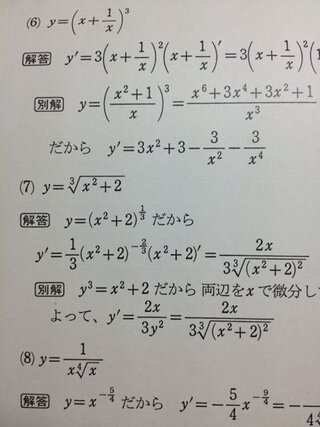 (6) y=(x+1/x)³
解答 y'=3(x+1/x)²(x+1/x)'=3(x+1/x)²(
別解 y=((x²+1)/x)³=(x⁶+3x⁴+3x²+1)/x³
だから y'=3x²+3-3/x²-3/x⁴
(7) y=∛(x²+2)
解答 y=(x²+2)^(1/3) だから
y'=1/3(x²+2)^(-2/3)(x²+2)'=2x/(3∛((x²+2)²))
別解 y³=x²+2 だから 両辺をxで微分し
よって、y'=2x/(3y²)=2x/(3∛((x²+2)²))
(8) y=1/(x∜x)
解答 y=x^(-5/4) だから y'=-5/4x^(-9/4)=-